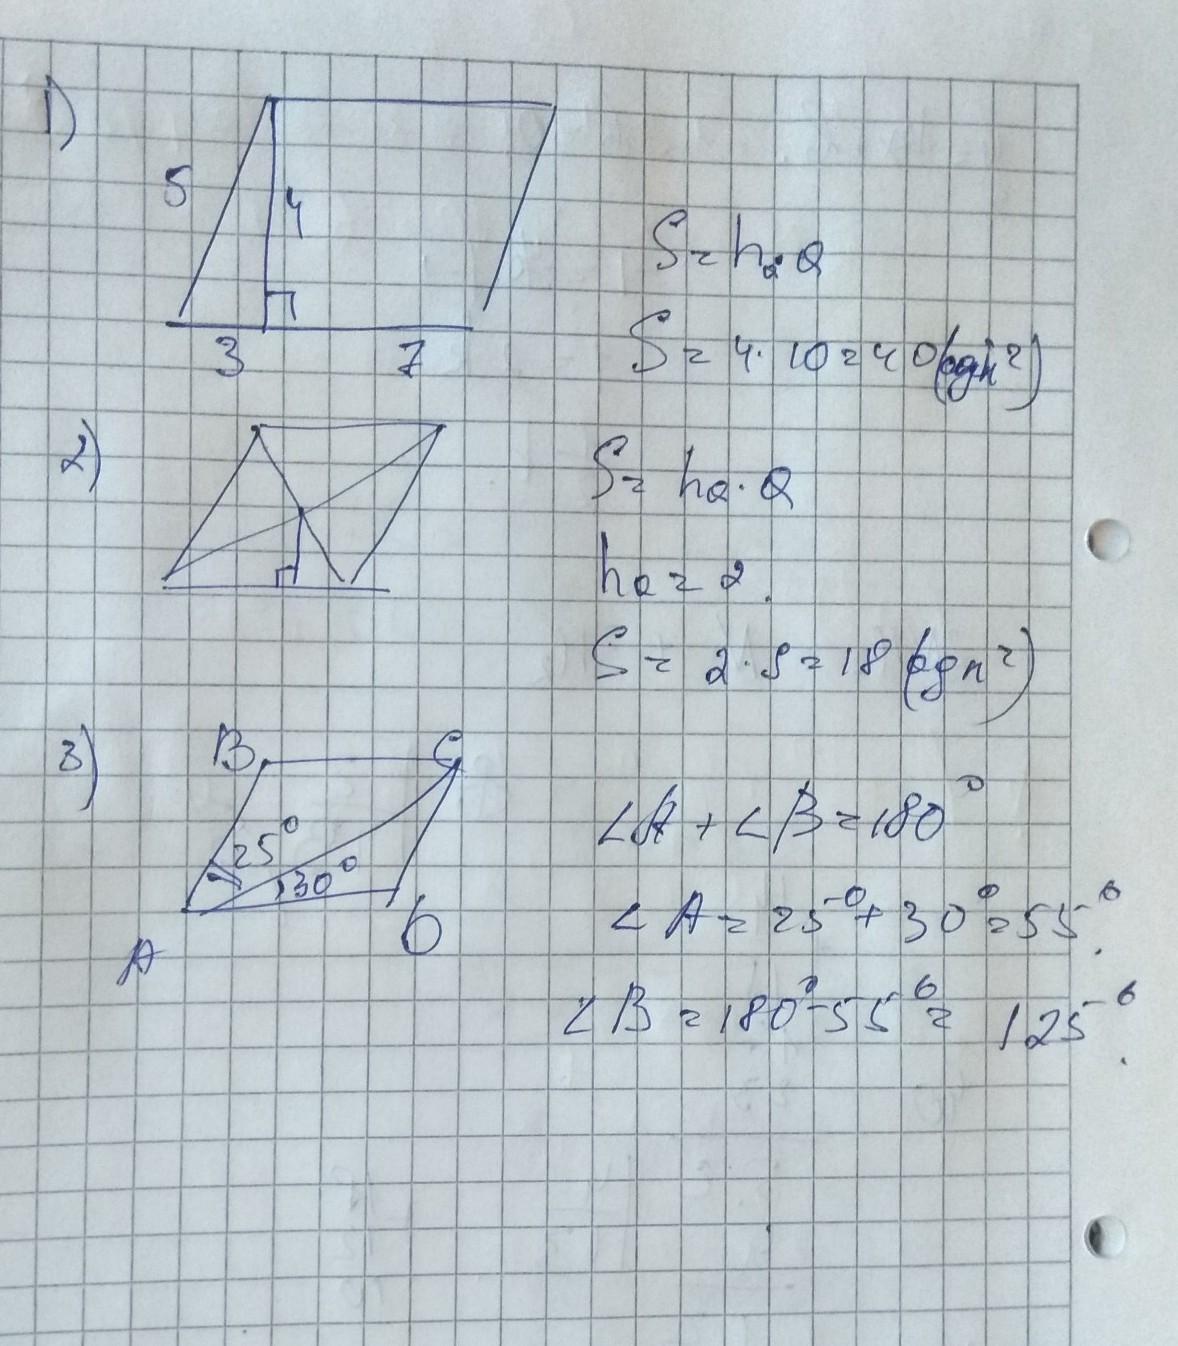 1)
5
4
3 7
S = hₐ · a
S = 4 · 10 = 40 (одн²)
2)
S = hₐ · a
hₐ = 2.
S = 2 · 9 = 18 (одн²)
3)
B C
25°
30°
A D
∠A + ∠B = 180°
∠A = 25° + 30° = 55°.
∠B = 180° - 55° = 125°.